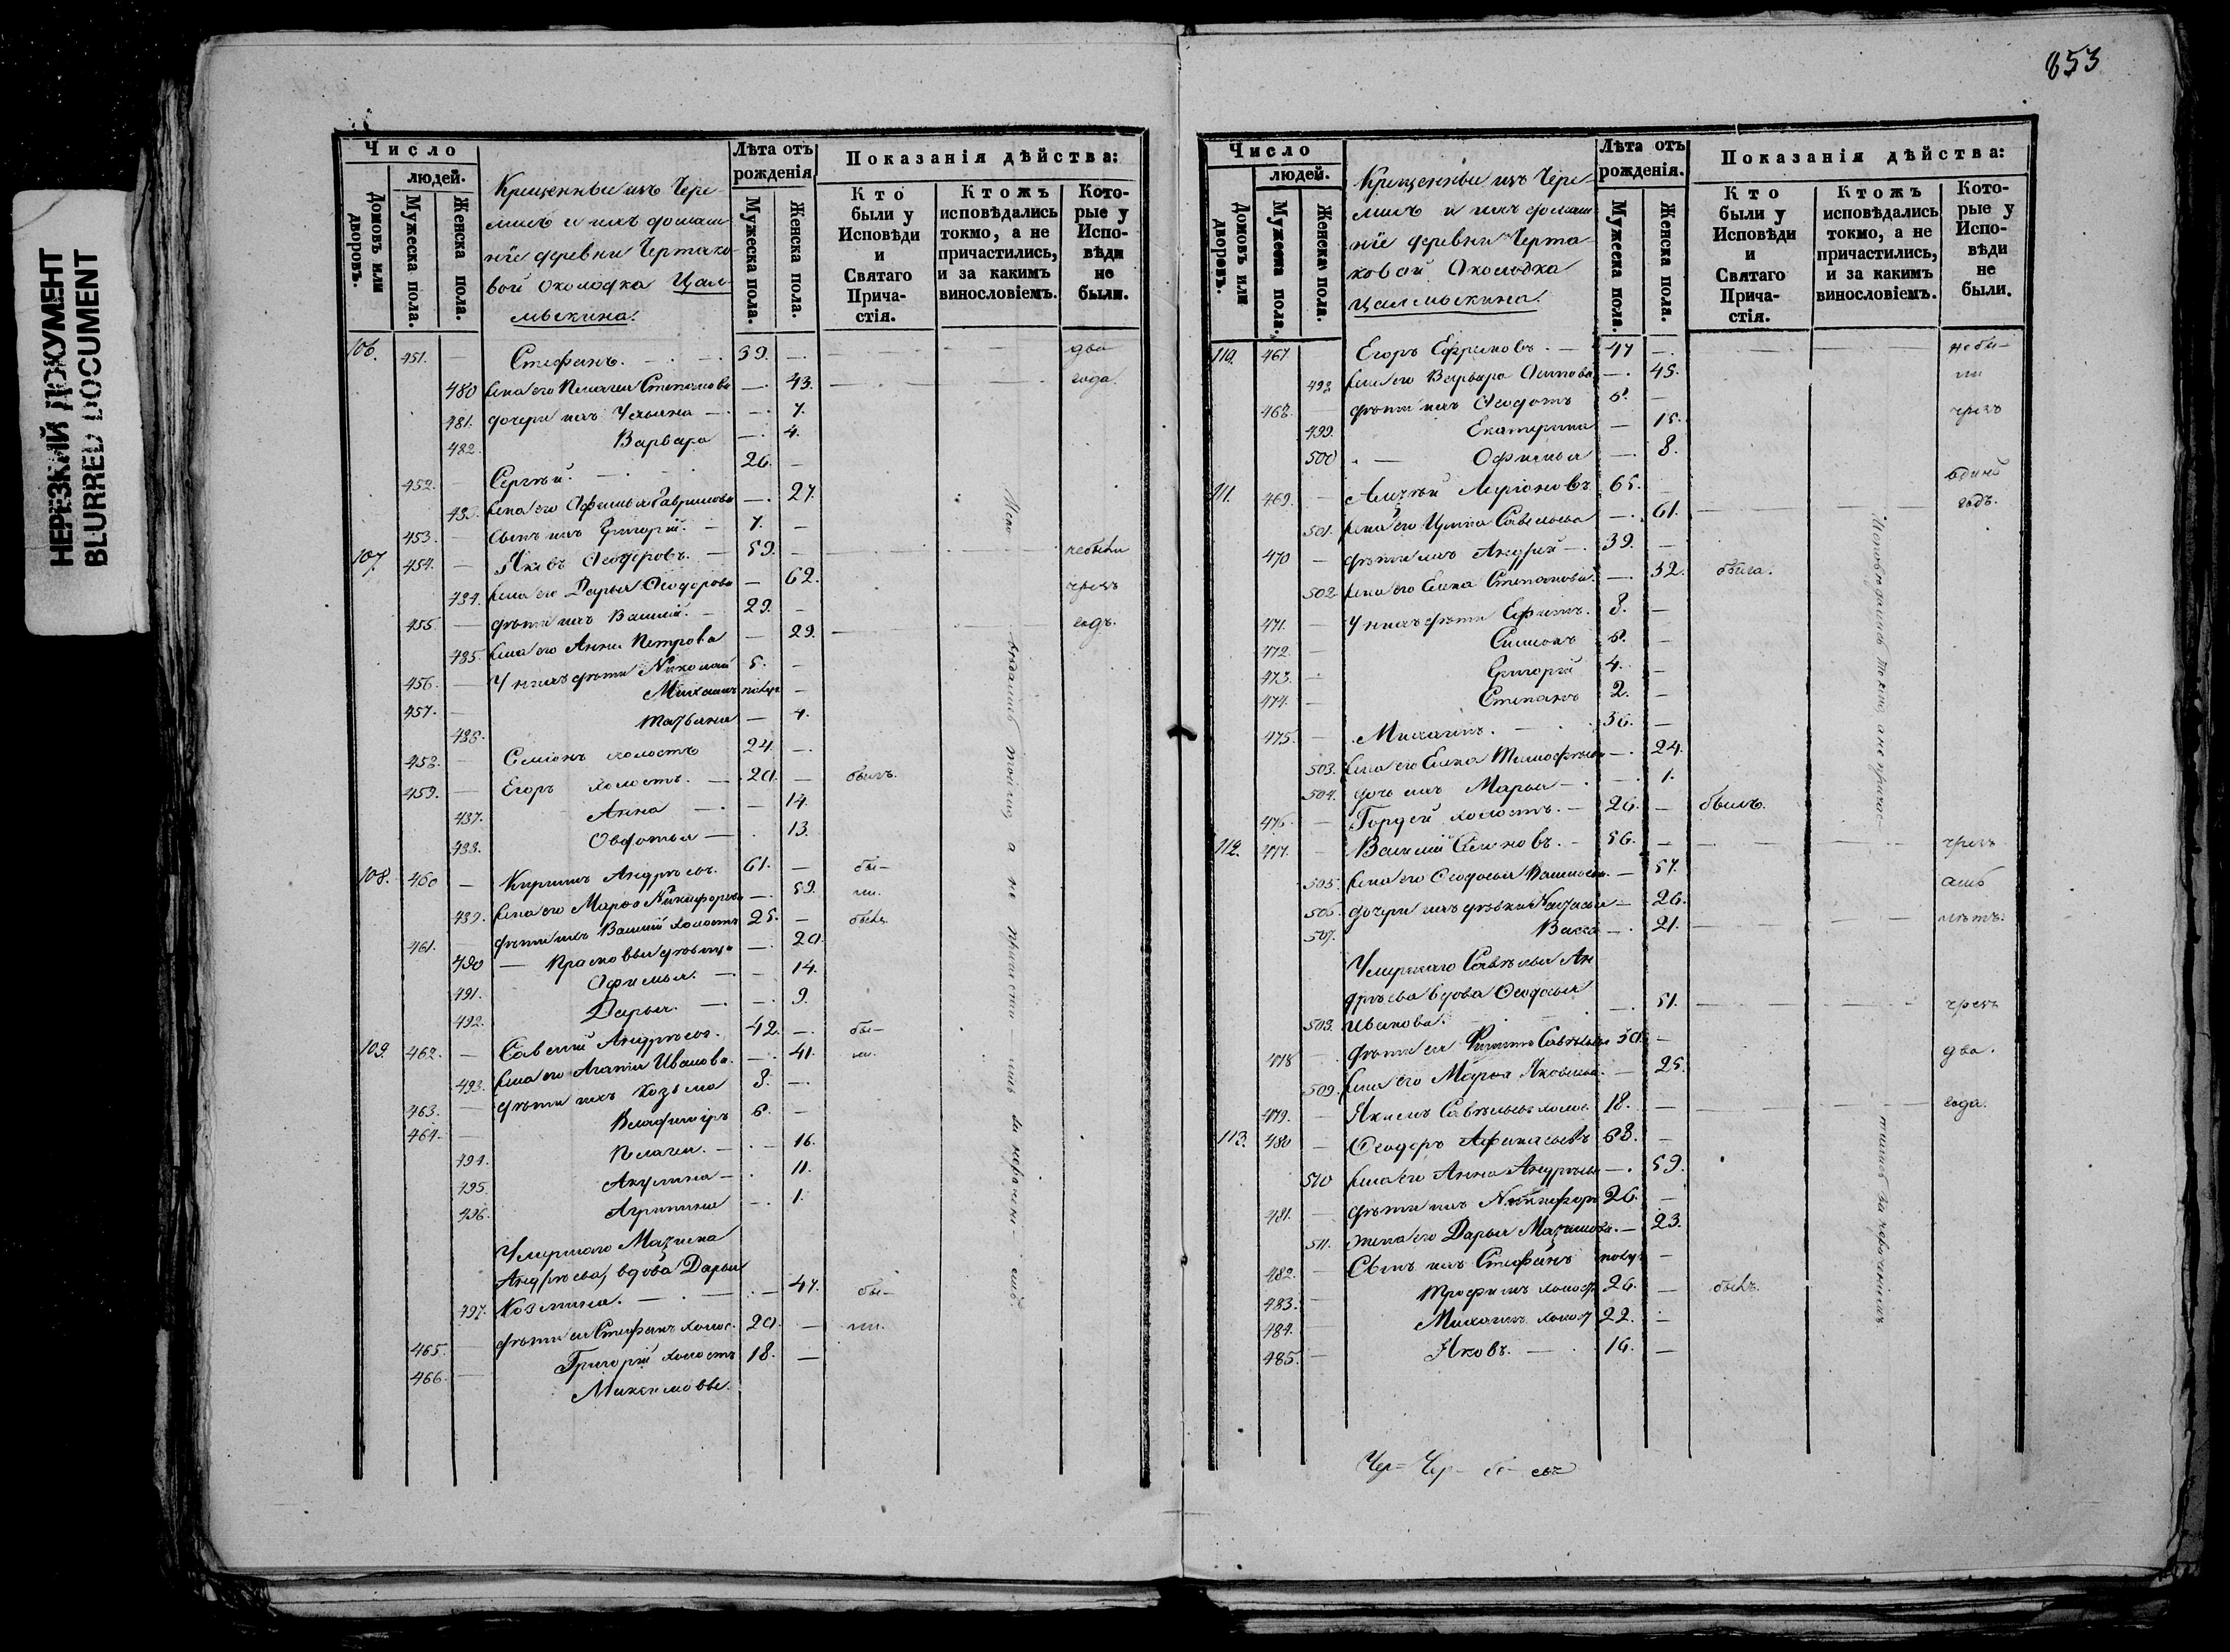 НЕРЕЗКИЙ ДОКУМЕНТ
BLURRED DOCUMENT
853
Число
людей.
Домовъ или дворовъ.
Мужеска пола.
Женска пола.
Крещенныи изъ Чере-
мисъ и ихъ домаш-
ніе деревни Чертако-
вой околодка Цал-
мыкина.
Лѣта отъ рожденія
Мужеска пола.
Женска пола.
Показанія дѣйства:
Кто были у Исповѣди и Святаго Прича-стія.
Ктожъ исповѣдались токмо, а не причастились, и за какимъ винословіемъ.
Кото-рые у Испо-вѣди не были.
106. 451. — Стефанъ. — 39. — два
480 жена его Пелагея Степанова — 43. года.
481. дочери ихъ Ульяна — 7.
482. Варвара — 4.
452. — Сергѣй. — 26. —
483. жена его Офимья Гаврилова — 27.
453. — сынъ ихъ Григорій. — 7. —
107 454. — Яковъ Ѳеодоровъ. — 59. — небыли
484. жена его Дарья Ѳеодорова — 62. чрезъ
455. — дѣти ихъ Василій. — 29. — годъ.
485. жена его Анна Петрова — 29.
456. — У нихъ дѣти Николай 5. —
457. — Михаилъ полуг. —
486. Татьяна — 4.
458. — Семіонъ холостъ 24. —
459. — Егоръ холостъ. — 20. — былъ.
487. Анна — 14.
488. Овдотья — 13.
108. 460 — Кирилъ Андреевъ. 61. — бы-
489. жена его Марѳа Никифорова — 59. ли.
461. — дѣти ихъ Василій холостъ 25. — былъ
490 — Прасковья дѣвица — 20
491. Офимья. — 14.
492. Дарья. — 9.
109. 462. — Савелій Андреевъ. 42. — бы-
493. жена его Агапія Иванова. — 41. ли.
463. — дѣти ихъ Козьма 8. —
464. — Владиміръ 6. —
494. Пелагея. — 16.
495. Акулина — 11.
496. Агрипина — 1.
Умершаго Максима
Андреева, вдова Дарья
497. Козмина. — 47. бы-
465. — дѣти ея Стефанъ холос. 20. — ли.
466. — Григорій холостъ 18. —
Максимовы.
Исповѣдались токмо, а не причасти-лись за нераченіемъ.
Число
людей.
Домовъ или дворовъ.
Мужеска пола.
Женска пола.
Крещенныи изъ Чере-
мисъ и ихъ домаш-
ніе деревни Черта-
ковой Околодка
Цалмыкина.
Лѣта отъ рожденія.
Мужеска пола.
Женска пола.
Показанія дѣйства:
Кто были у Исповѣди и Святаго Прича-стія.
Ктожъ исповѣдались токмо, а не причастились, и за какимъ винословіемъ.
Кото-рые у Испо-вѣди не были.
110. 467 Егоръ Ефремовъ. — 47 — небы-
498 жена его Варвара Осипова — 45. ли
468. дѣти ихъ Ѳеодотъ 5. — чрезъ
499. Екатерина — 15.
500 — Офимья — 8. единъ
111. 469. — Алексѣй Ларіоновъ 65. — годъ.
501. жена его Улита Савельева — 61.
470 — дѣти ихъ Андрей — 39. —
502 жена его Елена Степанова — 32. была.
471. — У нихъ дѣти Ефимъ. 8. —
472. — Симіонъ 5. —
473. — Григорій 4. —
474. — Степанъ 2. —
475. — Михаилъ. — 36. —
503. жена его Елена Тимофѣева — 24.
504. дочь ихъ Марья — 1.
476. — Гордей холостъ. — 26. — былъ.
112. 477. — Василій Семеновъ. — 56. — чрезъ
505. жена его Ѳеодосья Васильева — 57. семь
506. дочери ихъ дѣвки Настасья — 26. лѣтъ.
507. Васса — 21.
Умершаго Савелья Ан
дреева вдова Ѳеодосья
508. Иванова. — 51. чрезъ
478 — дѣти ея Филипъ Савельевъ 30. — два.
509 жена его Марѳа Яковлева. — 25.
479. — Якимъ Савельевъ холос. 18. — года.
113. 480 — Ѳеодоръ Афанасьевъ 68. —
510 жена его Анна Андреева — 59.
481. — дѣти ихъ Никифоръ 26. —
511. жена его Дарья Максимова. — 23.
482. — Сынъ ихъ Стефанъ полуг. —
483. — Трофимъ холост 26. — былъ.
484. — Михаилъ холост 22. —
485. — Яковъ. — 16. —
Исповѣдались токмо, а не причас-тились за нераченіемъ